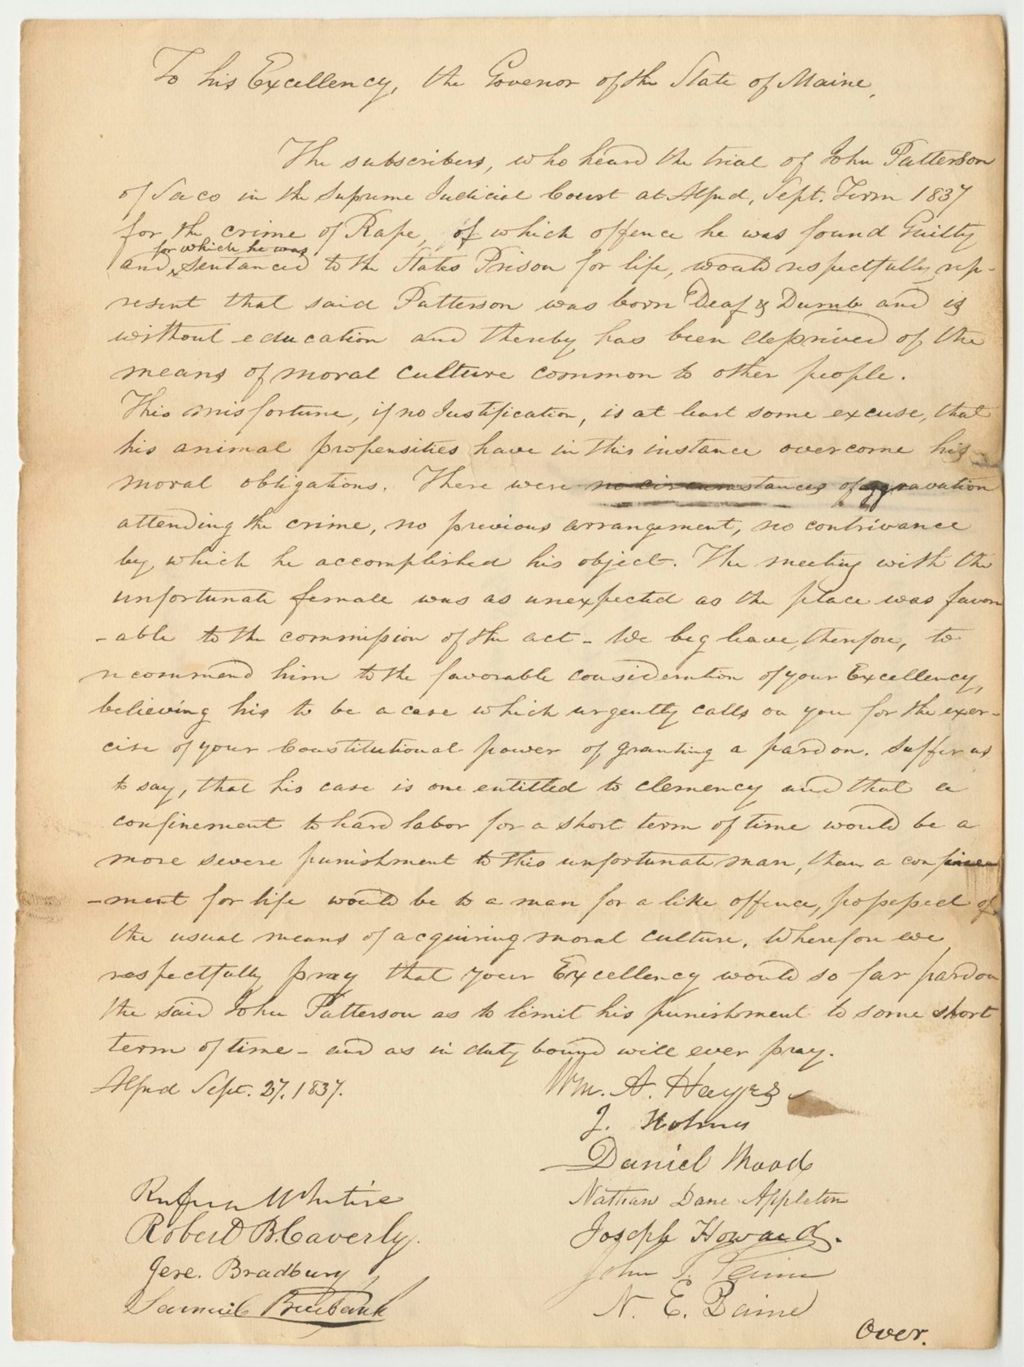 To his Excellency, the Govenor of the State of Maine,
The subscribers, who heard the trial of John Patterson
of Saco in the Supreme Judicial Court at Alfred, Sept. Term 1837
for the crime of Rape, of which offence he was found Guilty
for which he was
and sentanced to the States Prison for life, would respectfully rep-
resent that said Patterson was born Deaf & Dumb and is
without education and thereby has been deprived of the
means of moral culture common to other people.
This misfortune, if no Justification, is at least some excuse, that
his animal propensities have in this instance overcome his
moral obligations. There were no circumstances of aggravation
attending the crime, no previous arrangement, no contrivance
by, which he accomplished his object. The meeting with the
unfortunate female was as unexpected as the place was favor
-able to the commission of the act - We beg leave, therefore, to
recommend him to the favorable consideration of your Excellency,
believing his to be a case which urgently calls on you for the exer-
cise of your Constitutional power of granting a pardon. Suffer us
to say, that his case is one entitled to clemency and that a
confinement to hard labor for a short term of time would be a
more severe punishment to this unfortunate man, than a confine
-ment for life would be to a man for a like offence, possessed of
the usual means of acquiring moral culture. Wherefore we
respectfully pray that your Excellency would so far pardon
the said John Patterson as to limit his punishment to some short
term of time - and as in duty bound will ever pray.
Alfred Sept. 27. 1837.
Wm. A. Hayes
J. Holmes
Daniel Wood
Nathan Dane Appleton
Joseph Howard.
John
N. E. Paine
Rufus McIntire
Robert B. Caverly.
Jere. Bradbury
Samuel Burbank
Over.